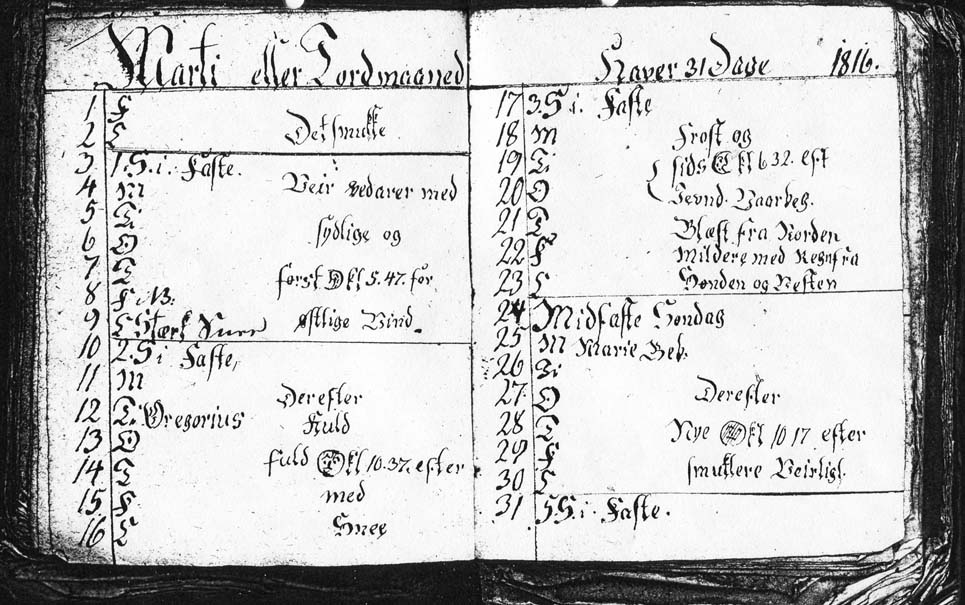 Marti eller Tordmaaned
1 F
2 L Det smukke
3 1. S. i. Faste.
4 M Veir vedarer med
5 Ti
6 O sydlige og
7 T
8 F MB: først kl 5.47. for
9 L Stærk Snee østlige Vind.
10 2. S i Faste,
11 M
12 Ti Gregorius Derefter Kuld
13 O
14 T fuld kl 10.37. efter
15 F med
16 L Snee
Haver 31 Dage 1816.
17 3. S i. Faste
18 M Frost og
19 Ti sids kl 6 32. eft
20 O Jevnd. Vaarbeg.
21 T Blæst fra Norden
22 F Mildere med Regn fra
23 L Sønden og Vesten
24 Midfaste Søndag
25 M Marie Beb.
26 Ti
27 O Derefter
28 T
29 F Nye kl 10 17 efter
30 L smukkere Veirligt.
31 5 S. i. Faste.